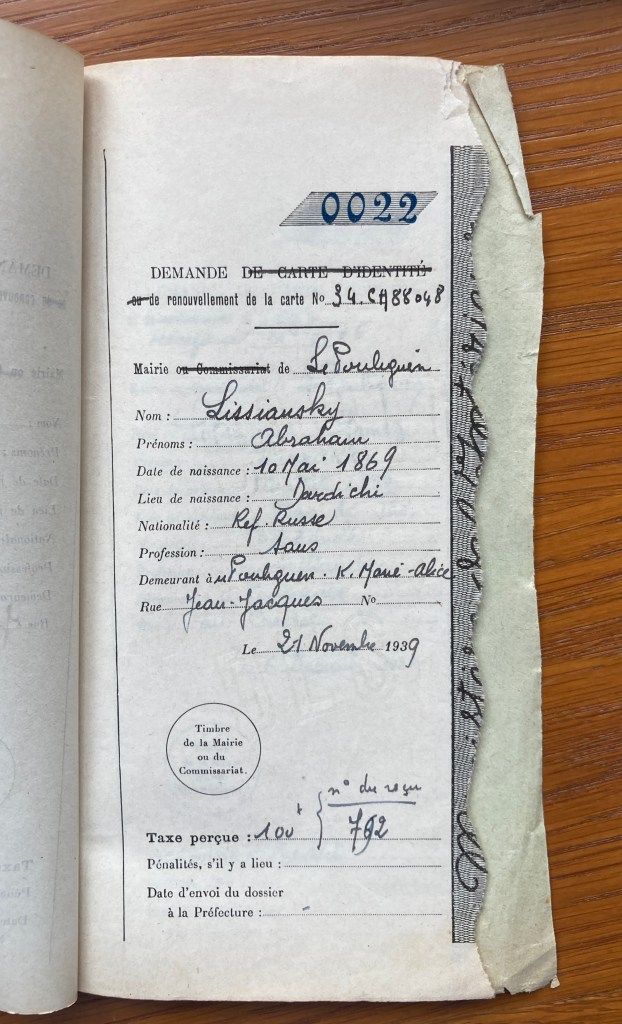 0022
DEMANDE DE CARTE D'IDENTITÉ
ou de renouvellement de la carte No 34.CA88048
Mairie ou Commissariat de Le Pouliguen
Nom : Lissiansky
Prénoms : Abraham
Date de naissance : 10 Mai 1869
Lieu de naissance : Dardichi
Nationalité : Ref. Russe
Profession : Sans
Demeurant à u Pouliguen. K. Marie-Alice
Rue Jean-Jacques No
Le 21 Novembre 1939
Timbre
de la Mairie
ou du
Commissariat.
n° du reçu
Taxe perçue : 100 f 762
Pénalités, s'il y a lieu :
Date d'envoi du dossier
à la Préfecture :